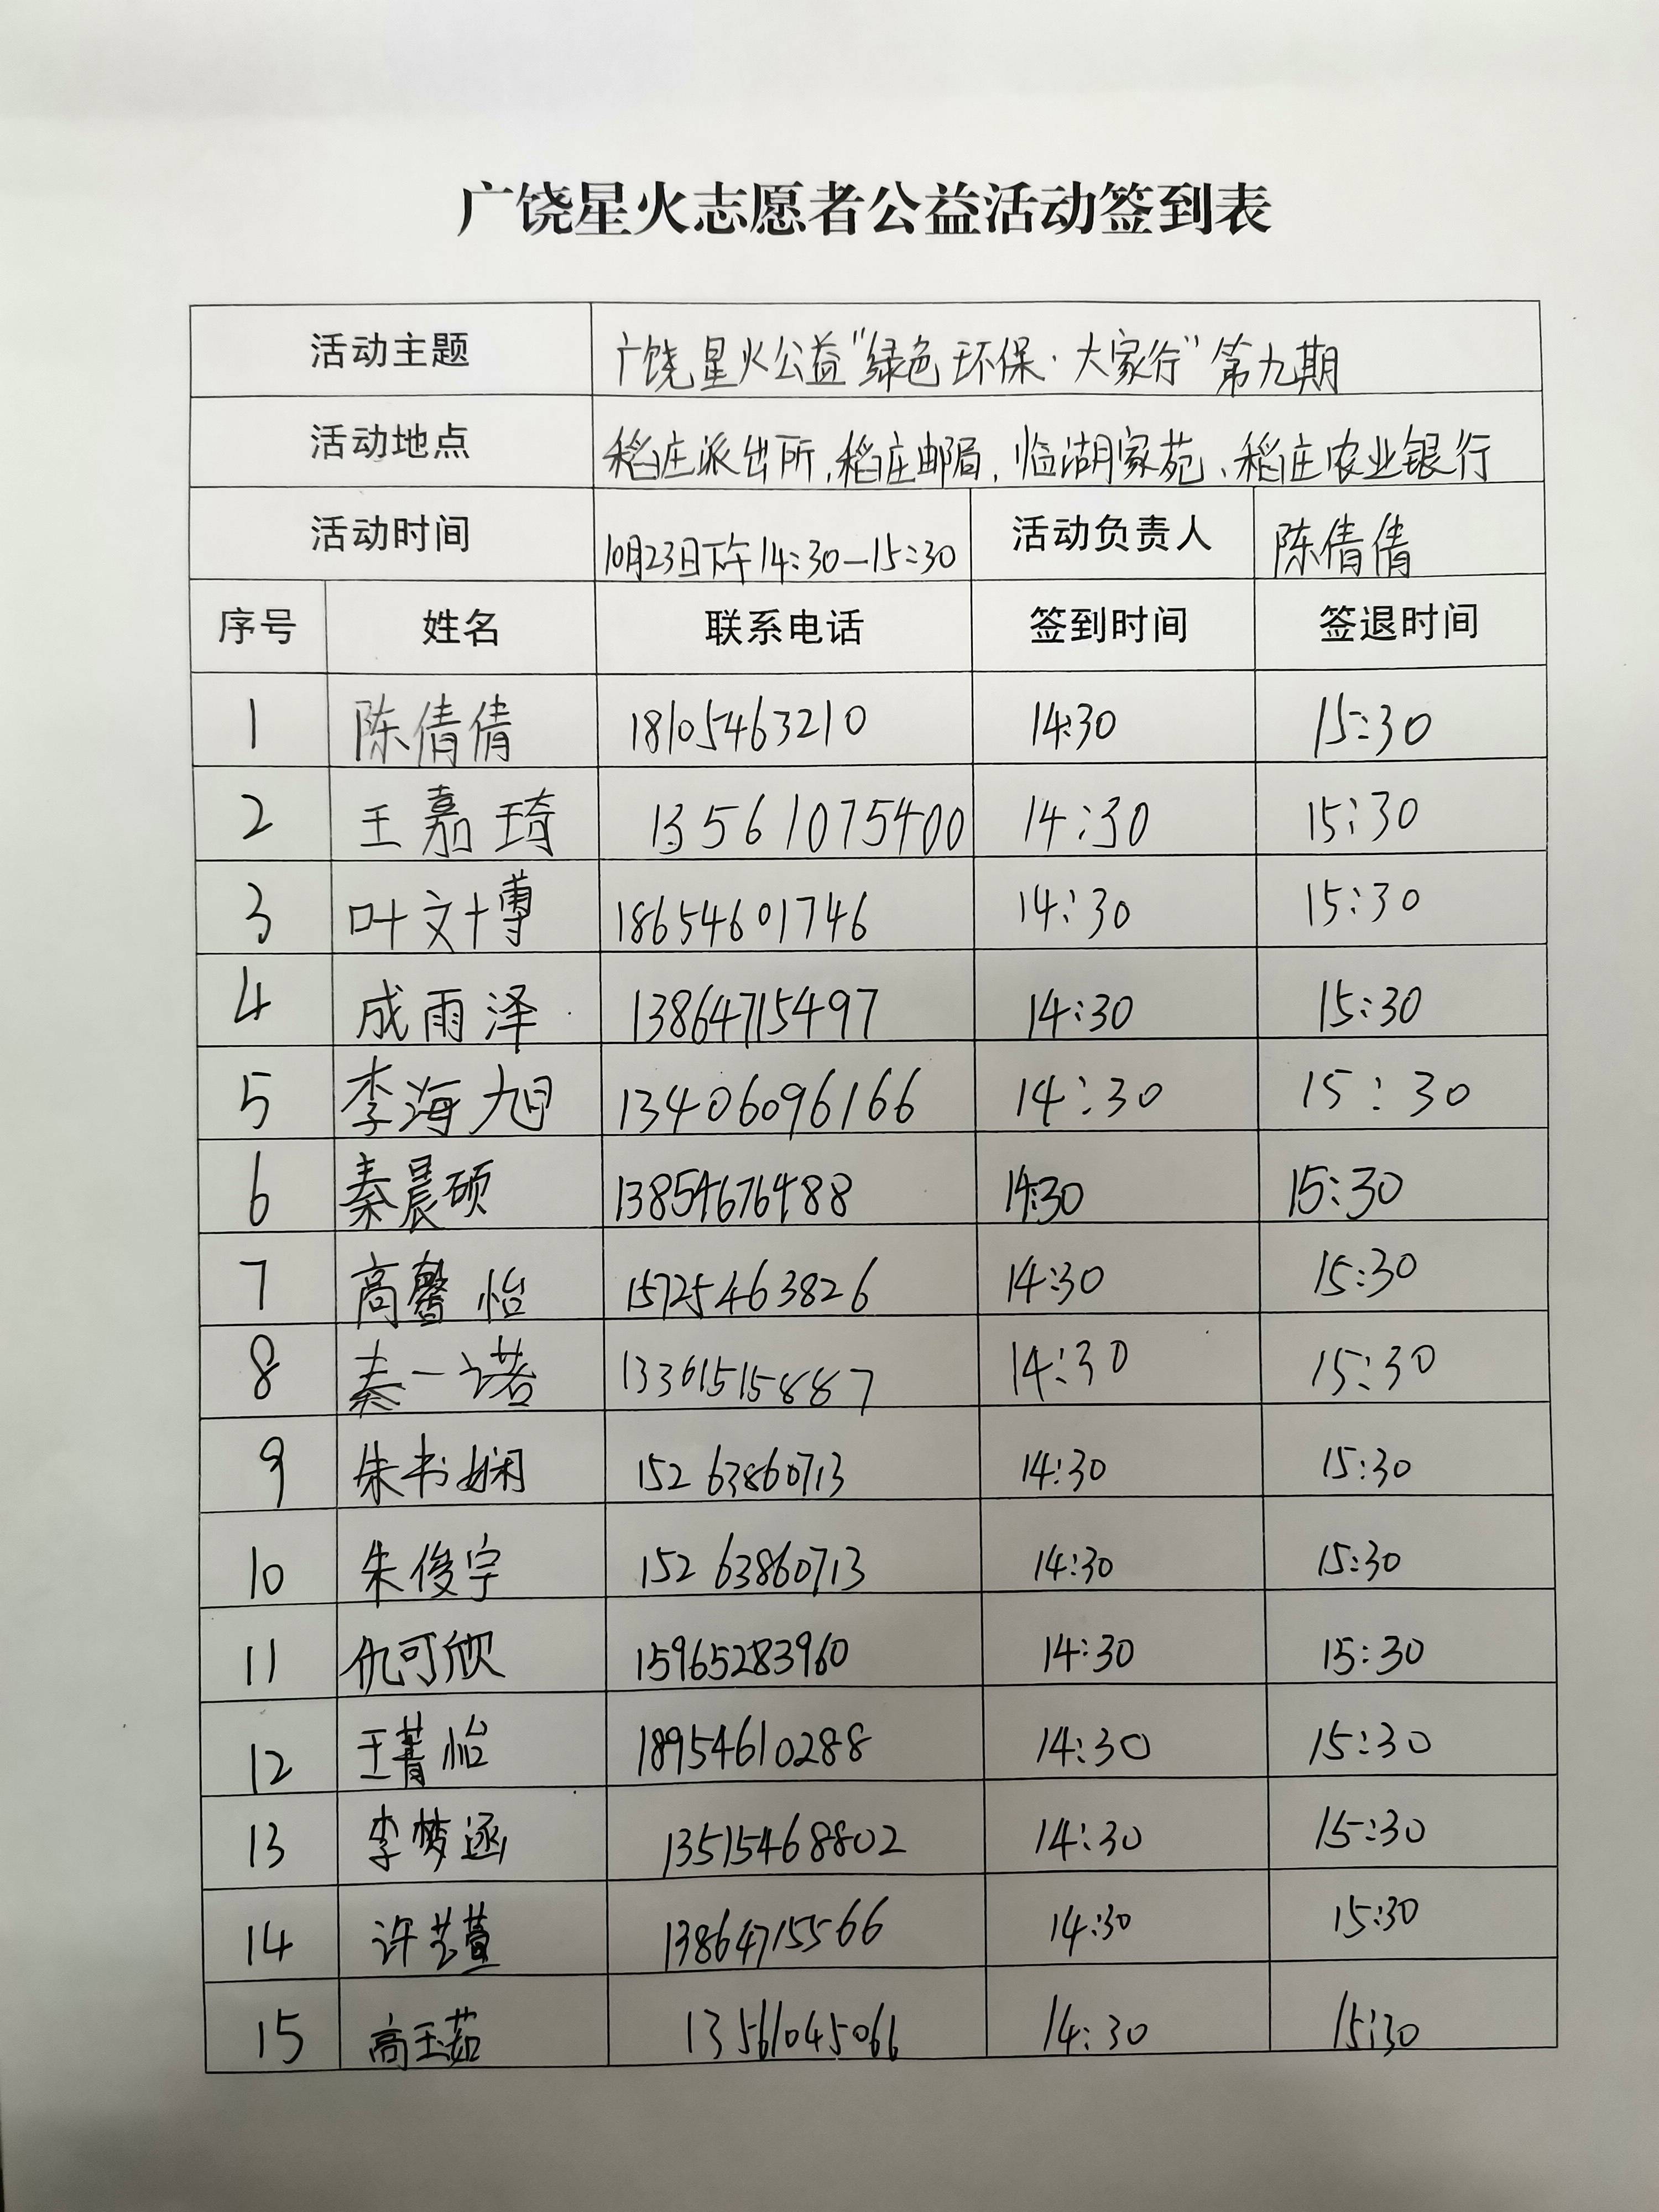 广饶星火志愿者公益活动签到表
活动主题 广饶星火公益“绿色环保·大家行”第九期
活动地点 稻庄派出所,稻庄邮局,临湖家苑、稻庄农业银行
活动时间 10月23日下午14:30—15:30 活动负责人 陈倩倩
序号 姓名 联系电话 签到时间 签退时间
1 陈倩倩 18105463210 14:30 15:30
2 王嘉琦 13561075400 14:30 15:30
3 叶文博 18654601746 14:30 15:30
4 成雨泽 13864715497 14:30 15:30
5 李海旭 13406096166 14:30 15:30
6 秦晨硕 13854676488 14:30 15:30
7 高馨怡 15725463826 14:30 15:30
8 秦一诺 13361515887 14:30 15:30
9 朱书娴 15263860713 14:30 15:30
10 朱俊宇 15263860713 14:30 15:30
11 仇可欣 15965283960 14:30 15:30
12 王菁怡 18954610288 14:30 15:30
13 李梦涵 13515468802 14:30 15:30
14 许艺萱 13864715566 14:30 15:30
15 高玉茹 13561045066 14:30 15:30